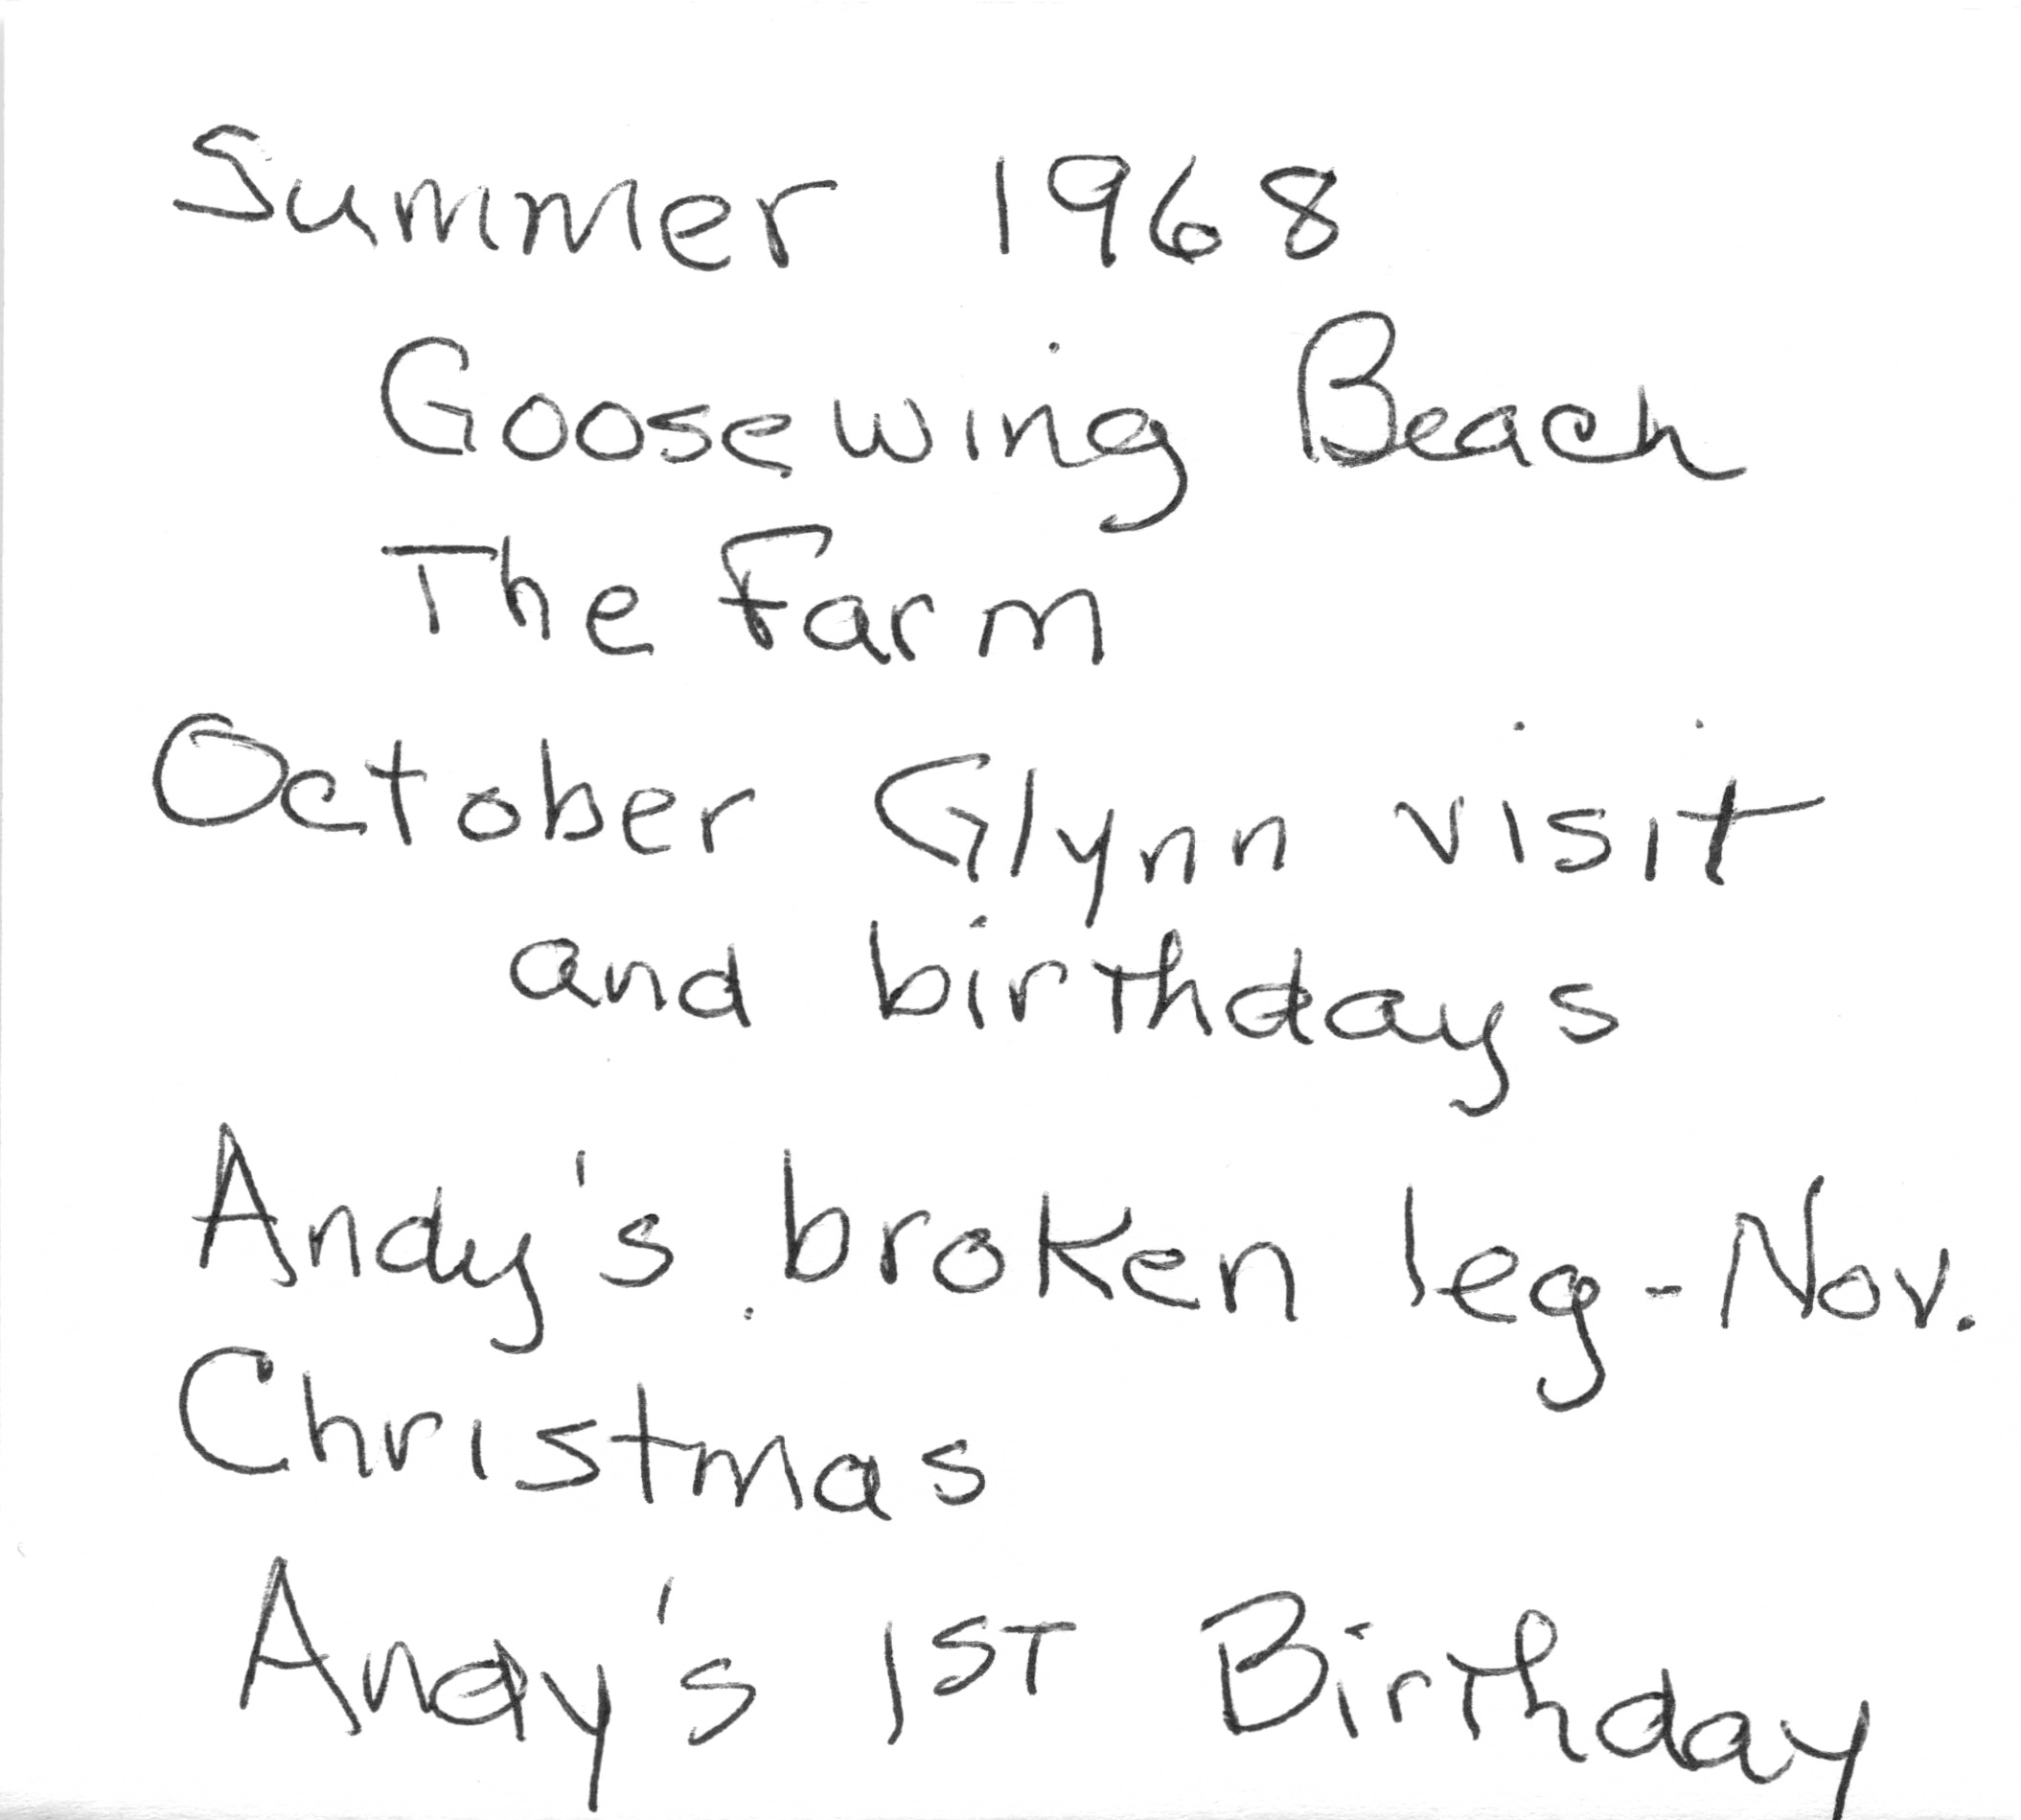 Summer 1968
Goosewing Beach
The Farm
October Glynn visit
and birthdays
Andy's broken leg - Nov.
Christmas
Andy's 1ST Birthday